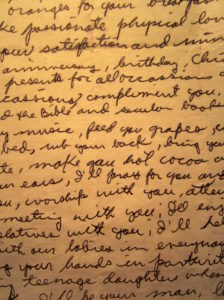 oranges for your breakfast
the passionate physical lov
your satisfaction and min
anniversary, birthday, Chri
presents for all occasions
cassions, compliment you,
d the Bible and secular book
y music, feed you grapes, p
bed, rub your back, bring you
te, make you hot cocoa o
our ears, I'll pray for you an
ou, worship with you, atten
meeting with you; I'll eng
elatives with you, I'll hel
ith our babies in everyway
g your hands in parturiti
teenage daughters when
I'll be your man,